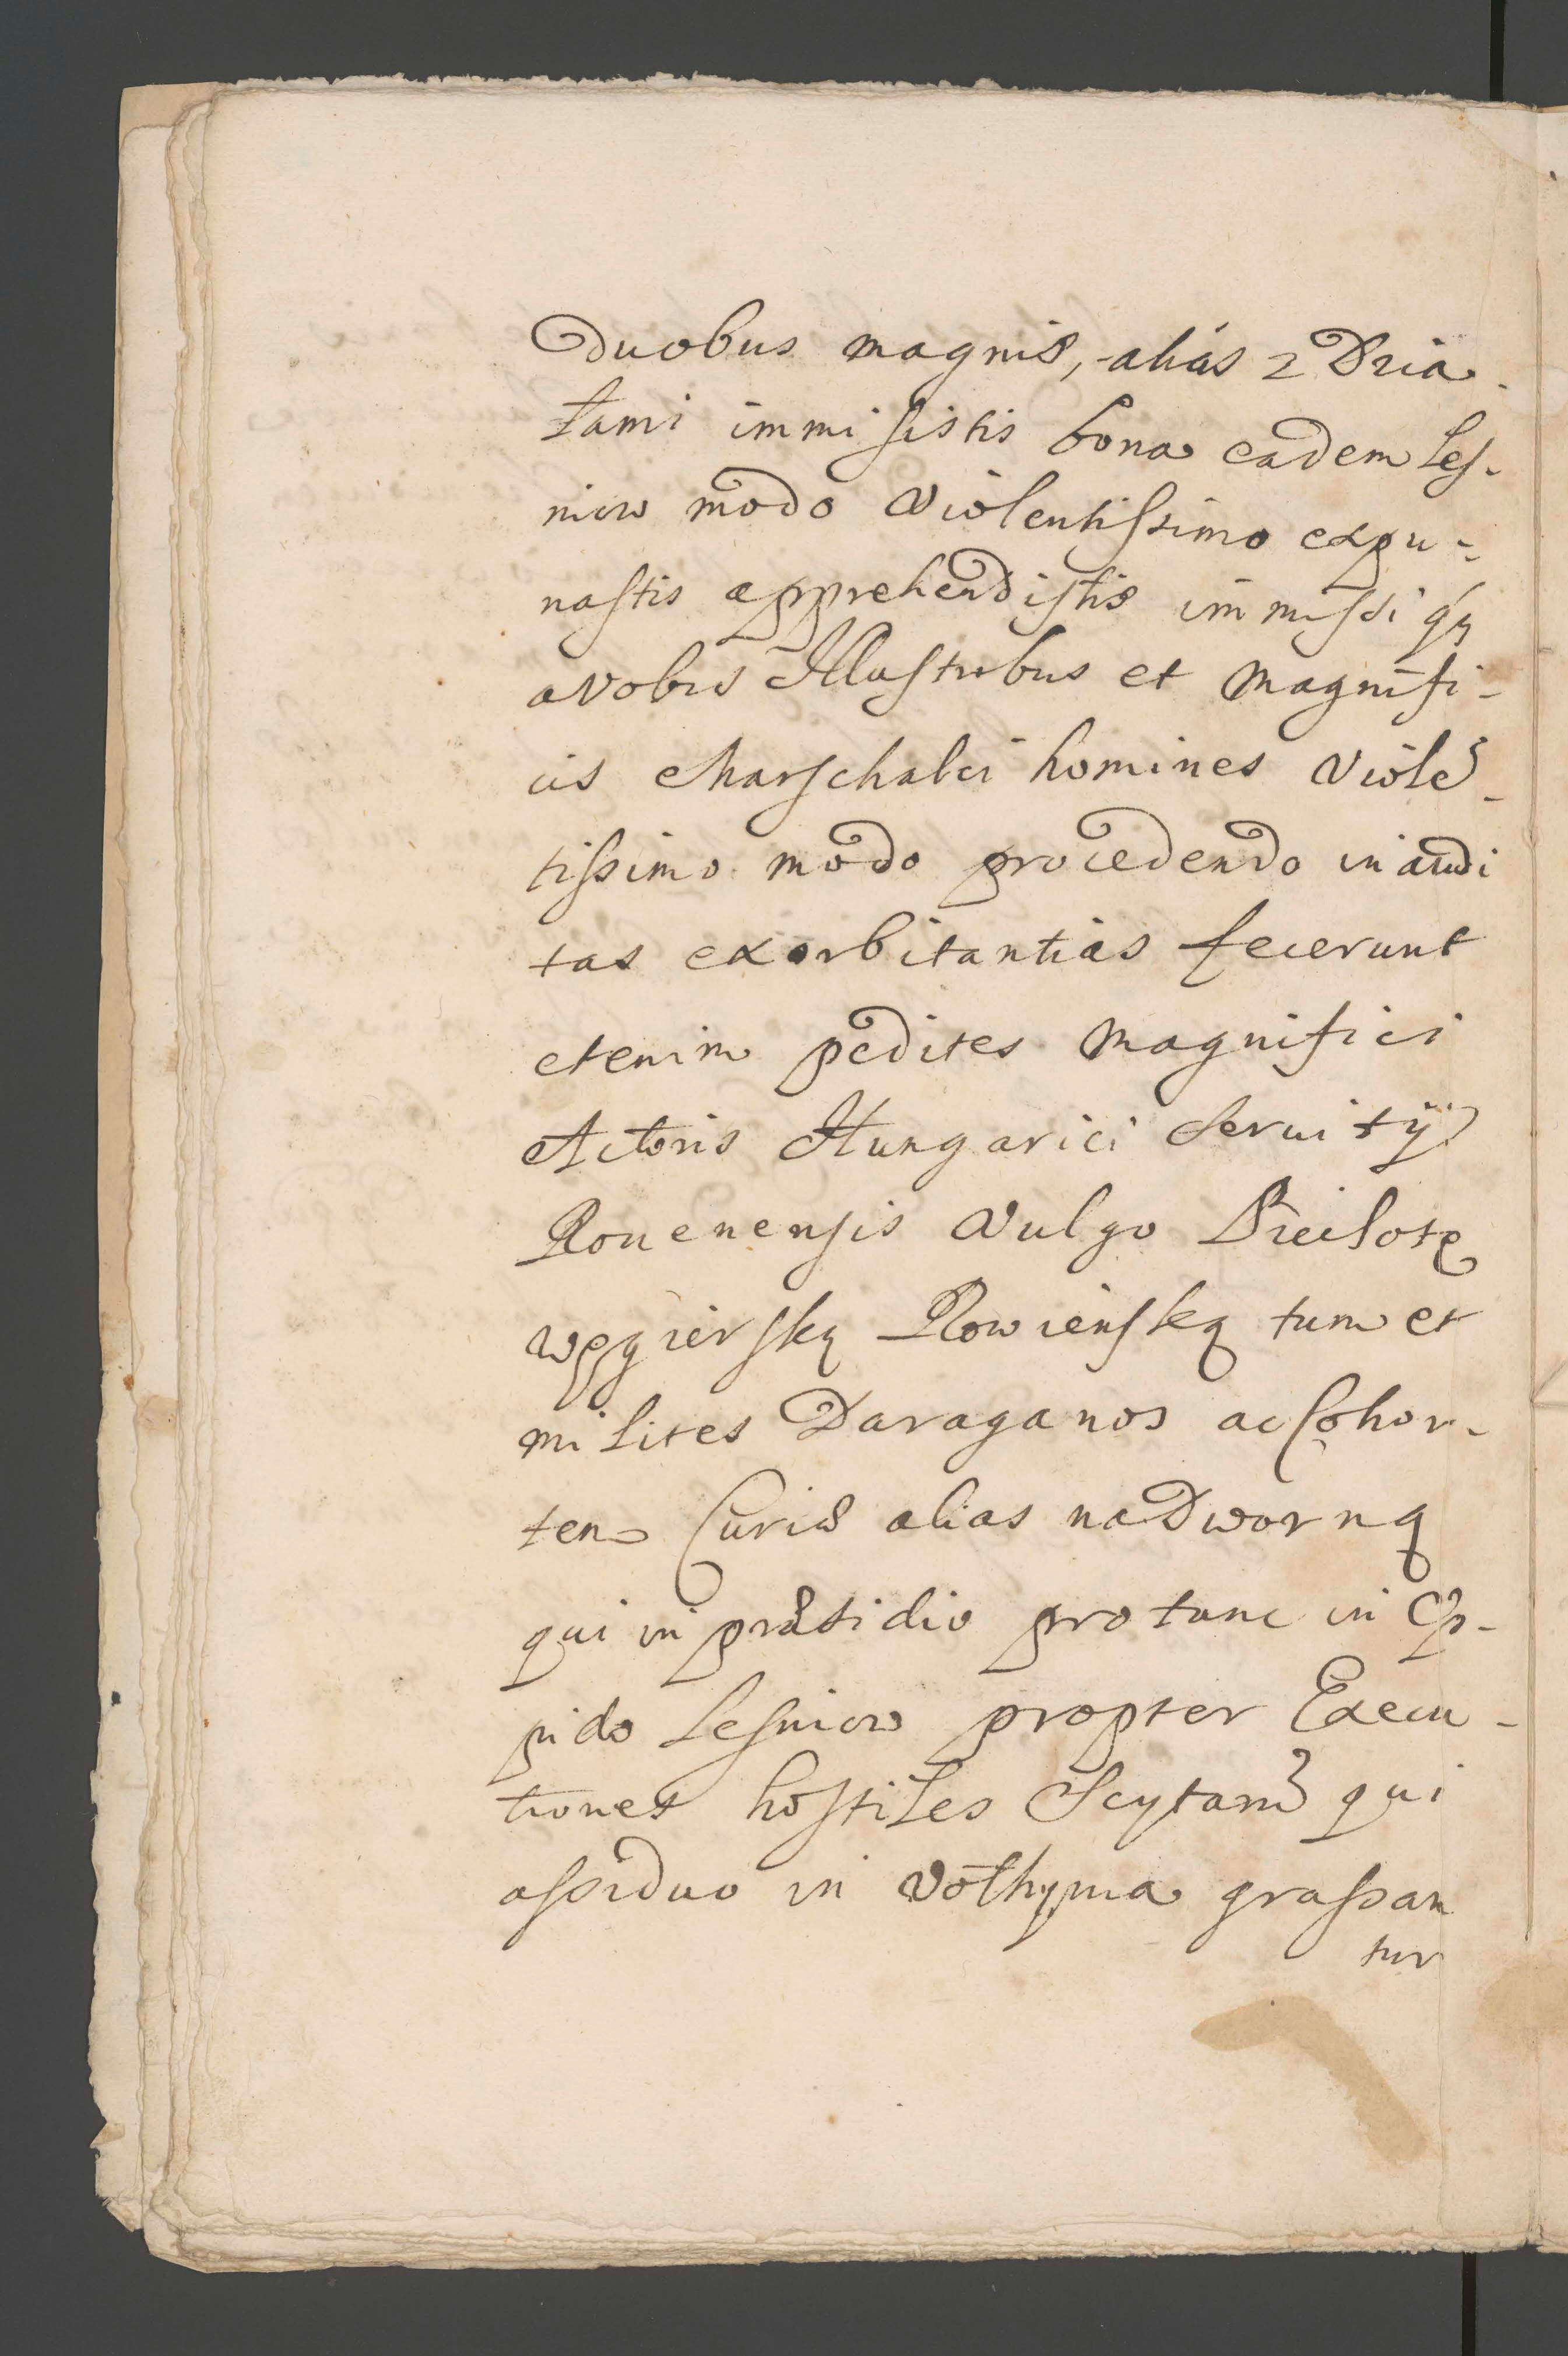 Duobus magnis, alias z Dzia
łami immisistis bona eadem Leſ-
niow modo violentiſsimo expu-
naſtis apprehendiſtis immiſsiqꝫ
a vobis Illuſtribus et Magnifi-
cis Marſchalci homines violē
tiſsimo modo procedendo inaudi
tas exorbitantias fecerunt
etenim pedites Magnifici
Actoris Hungarici Seruitÿ
Rouenenſis vulgo Piechotę
węgierſką Rowienſką tum et
milites Daraganos ac Cohor-
tem Curiæ alias nadworną
qui in præsidio pro tunc in Op-
pido Leſniow propter Execu-
tiones hoſtiles Scytarū qui
aſsiduo in Volhynia graſsan
tur